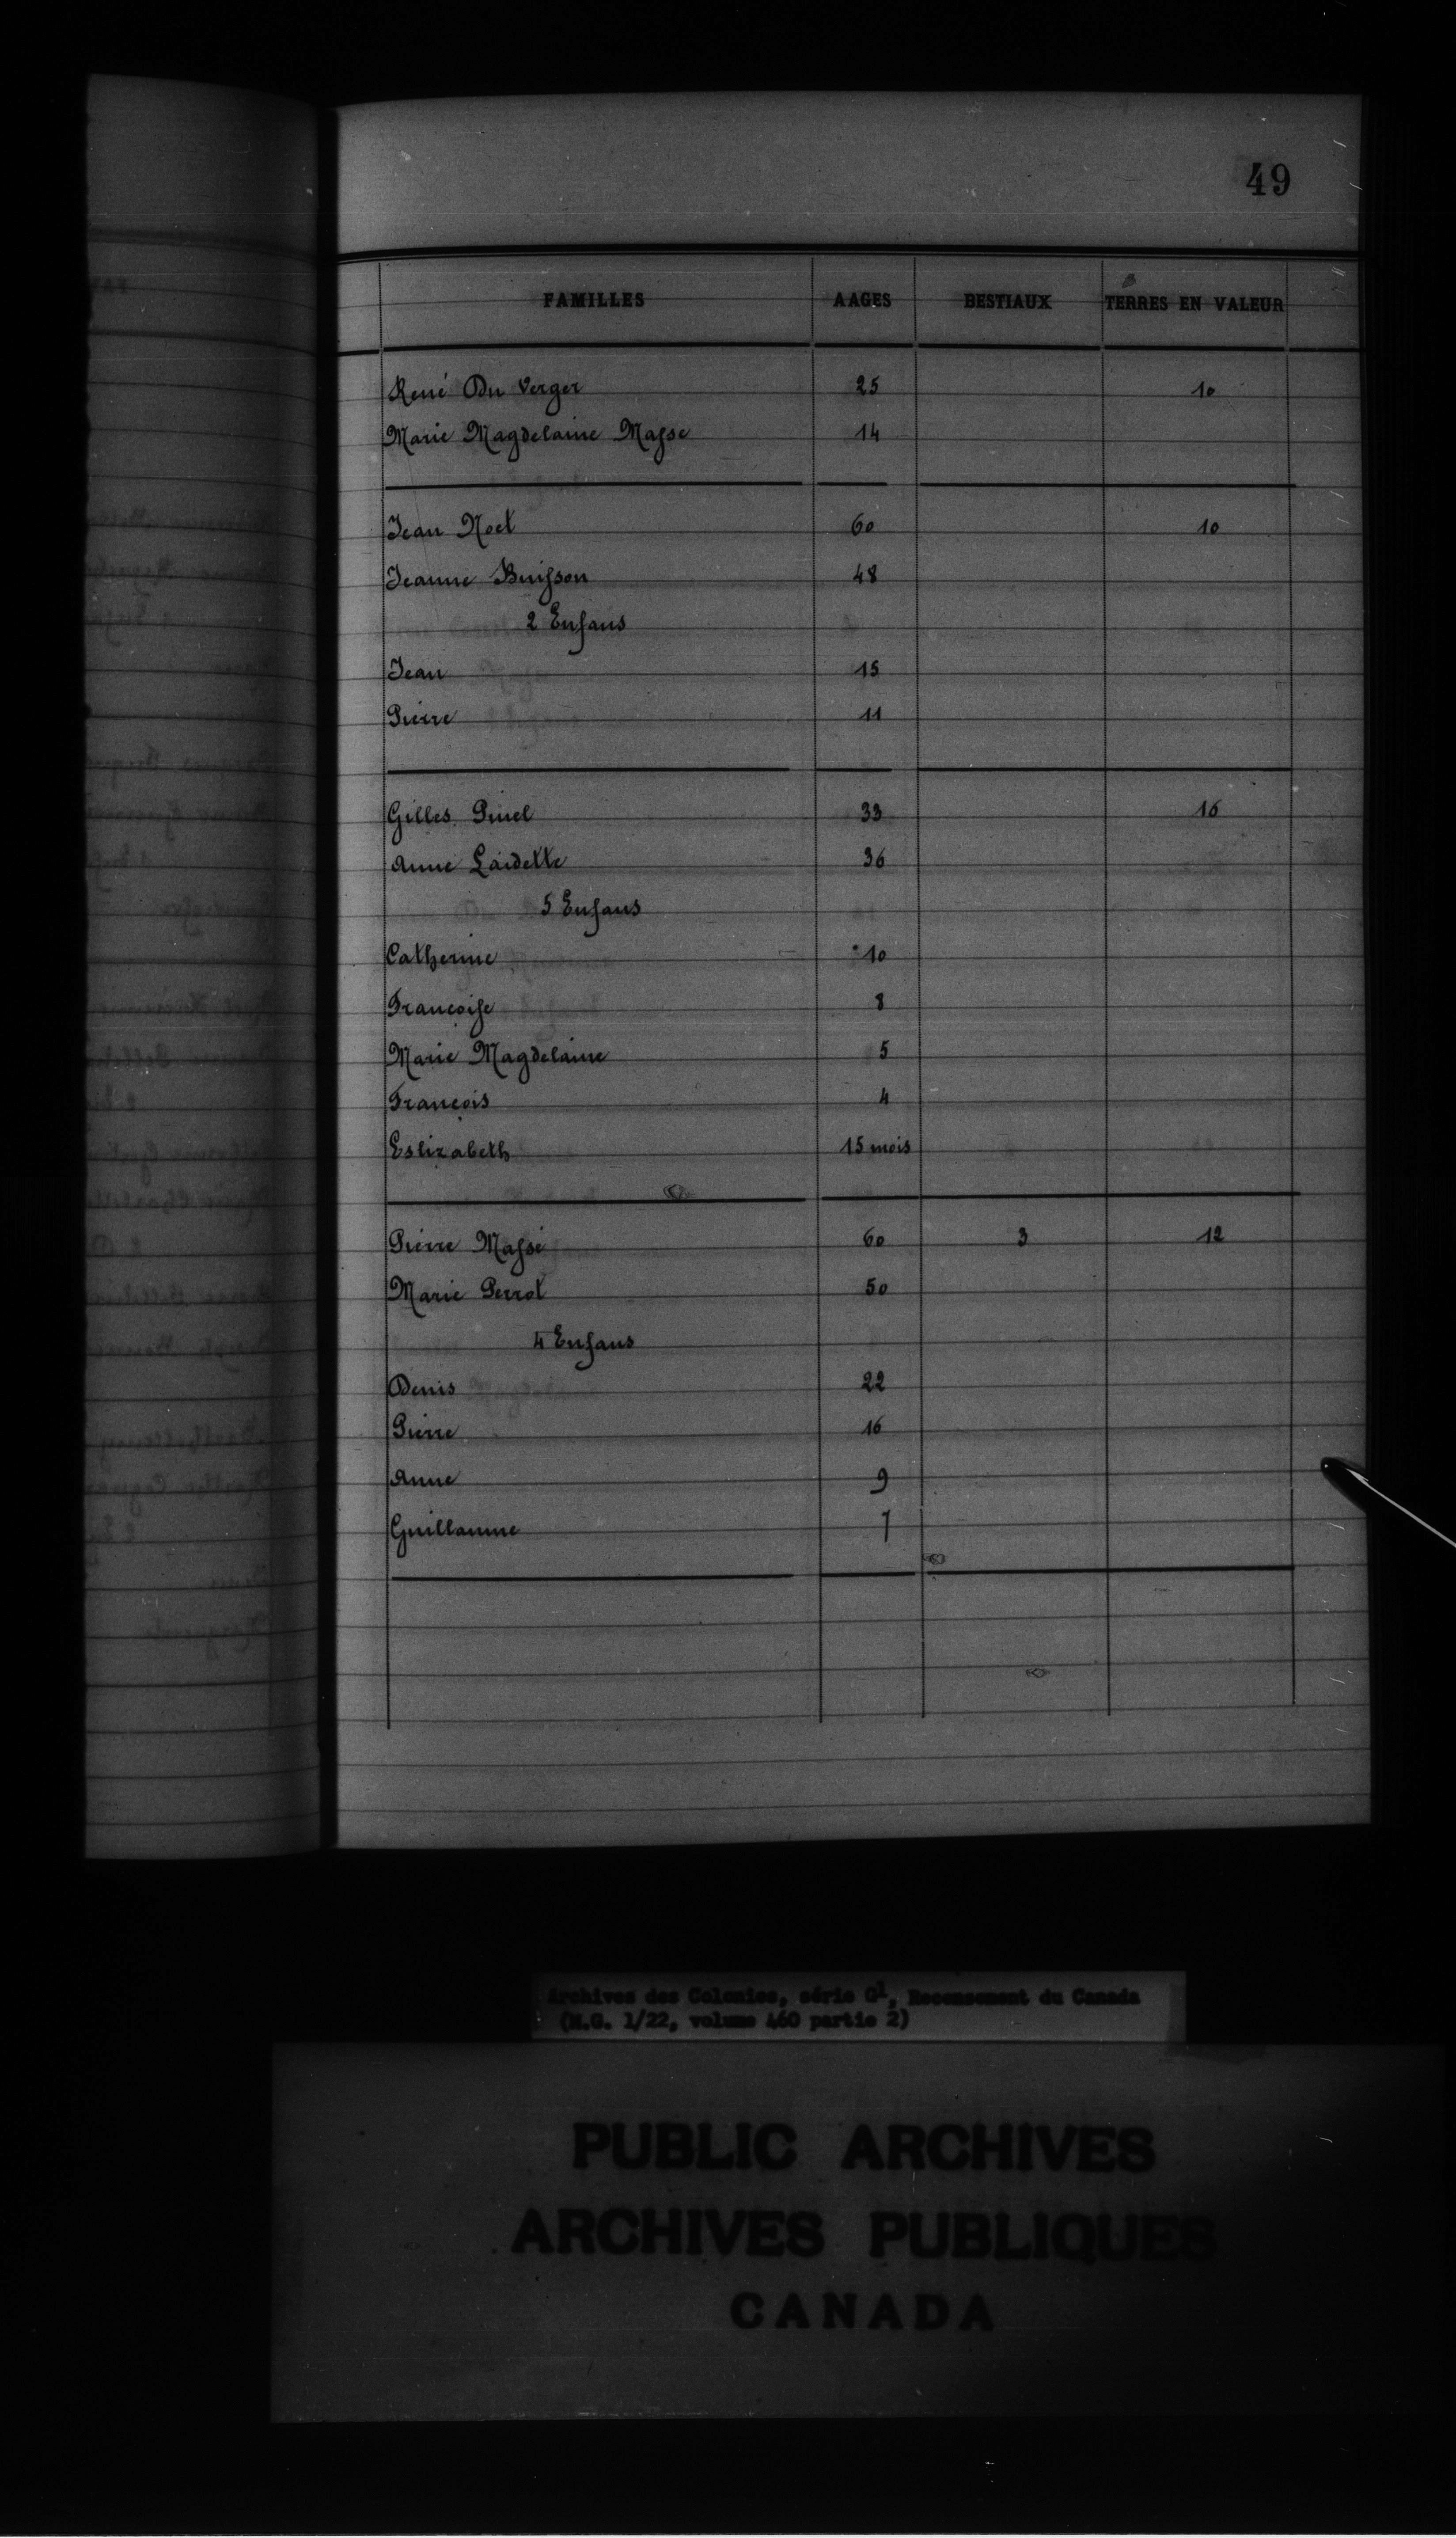 49
FAMILLES AAGES BESTIAUX TERRES EN VALEUR
René Du Verger 25 10
Marie Magdelaine Masse 14
Jean Noel 60 10
Jeanne Buisson 48
2 Enfans
Jean 15
Pierre 11
Gilles Pinel 33 16
Anne Laidette 36
5 Enfans
Catherine 10
Françoise 8
Marie Magdelaine 5
François 4
Eslizabeth 15 mois
Pierre Massé 60 3 12
Marie Perrot 50
4 Enfans
Denis 22
Pierre 16
Anne 9
Guillaume 7
Archives des Colonies, série G1, Recensement du Canada
(M.G. 1/22, volume 460 partie 2)
PUBLIC ARCHIVES
ARCHIVES PUBLIQUES
CANADA